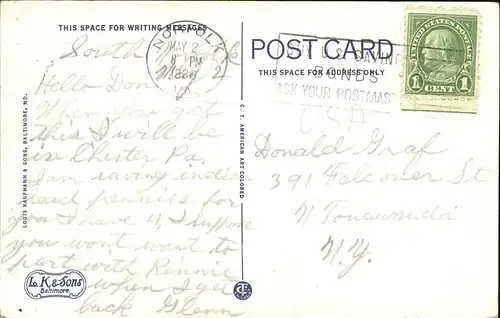 THIS SPACE FOR WRITING MESSAGES
South Norfolk
May 2
Hello Don:
When you get
this I will be
in Chester Pa.
I am saving indian
head pennies for
you I have 4, I suppose
you wont want to
part with Rinnie
when I get
back Glenn
LOUIS KAUFMANN & SONS, BALTIMORE, MD.
L.K & Sons
Baltimore
C. T. AMERICAN ART COLORED
NORFOLK
MAY 2
PM
VA
POST CARD
THIS SPACE FOR ADDRESS ONLY
BUY U.S. SAVINGS
BONDS
ASK YOUR POSTMASTER
UNITED STATES POSTAGE
1 CENT 1
USA
Donald Graf
391 Falconer St
N Tonawanda
N.Y.